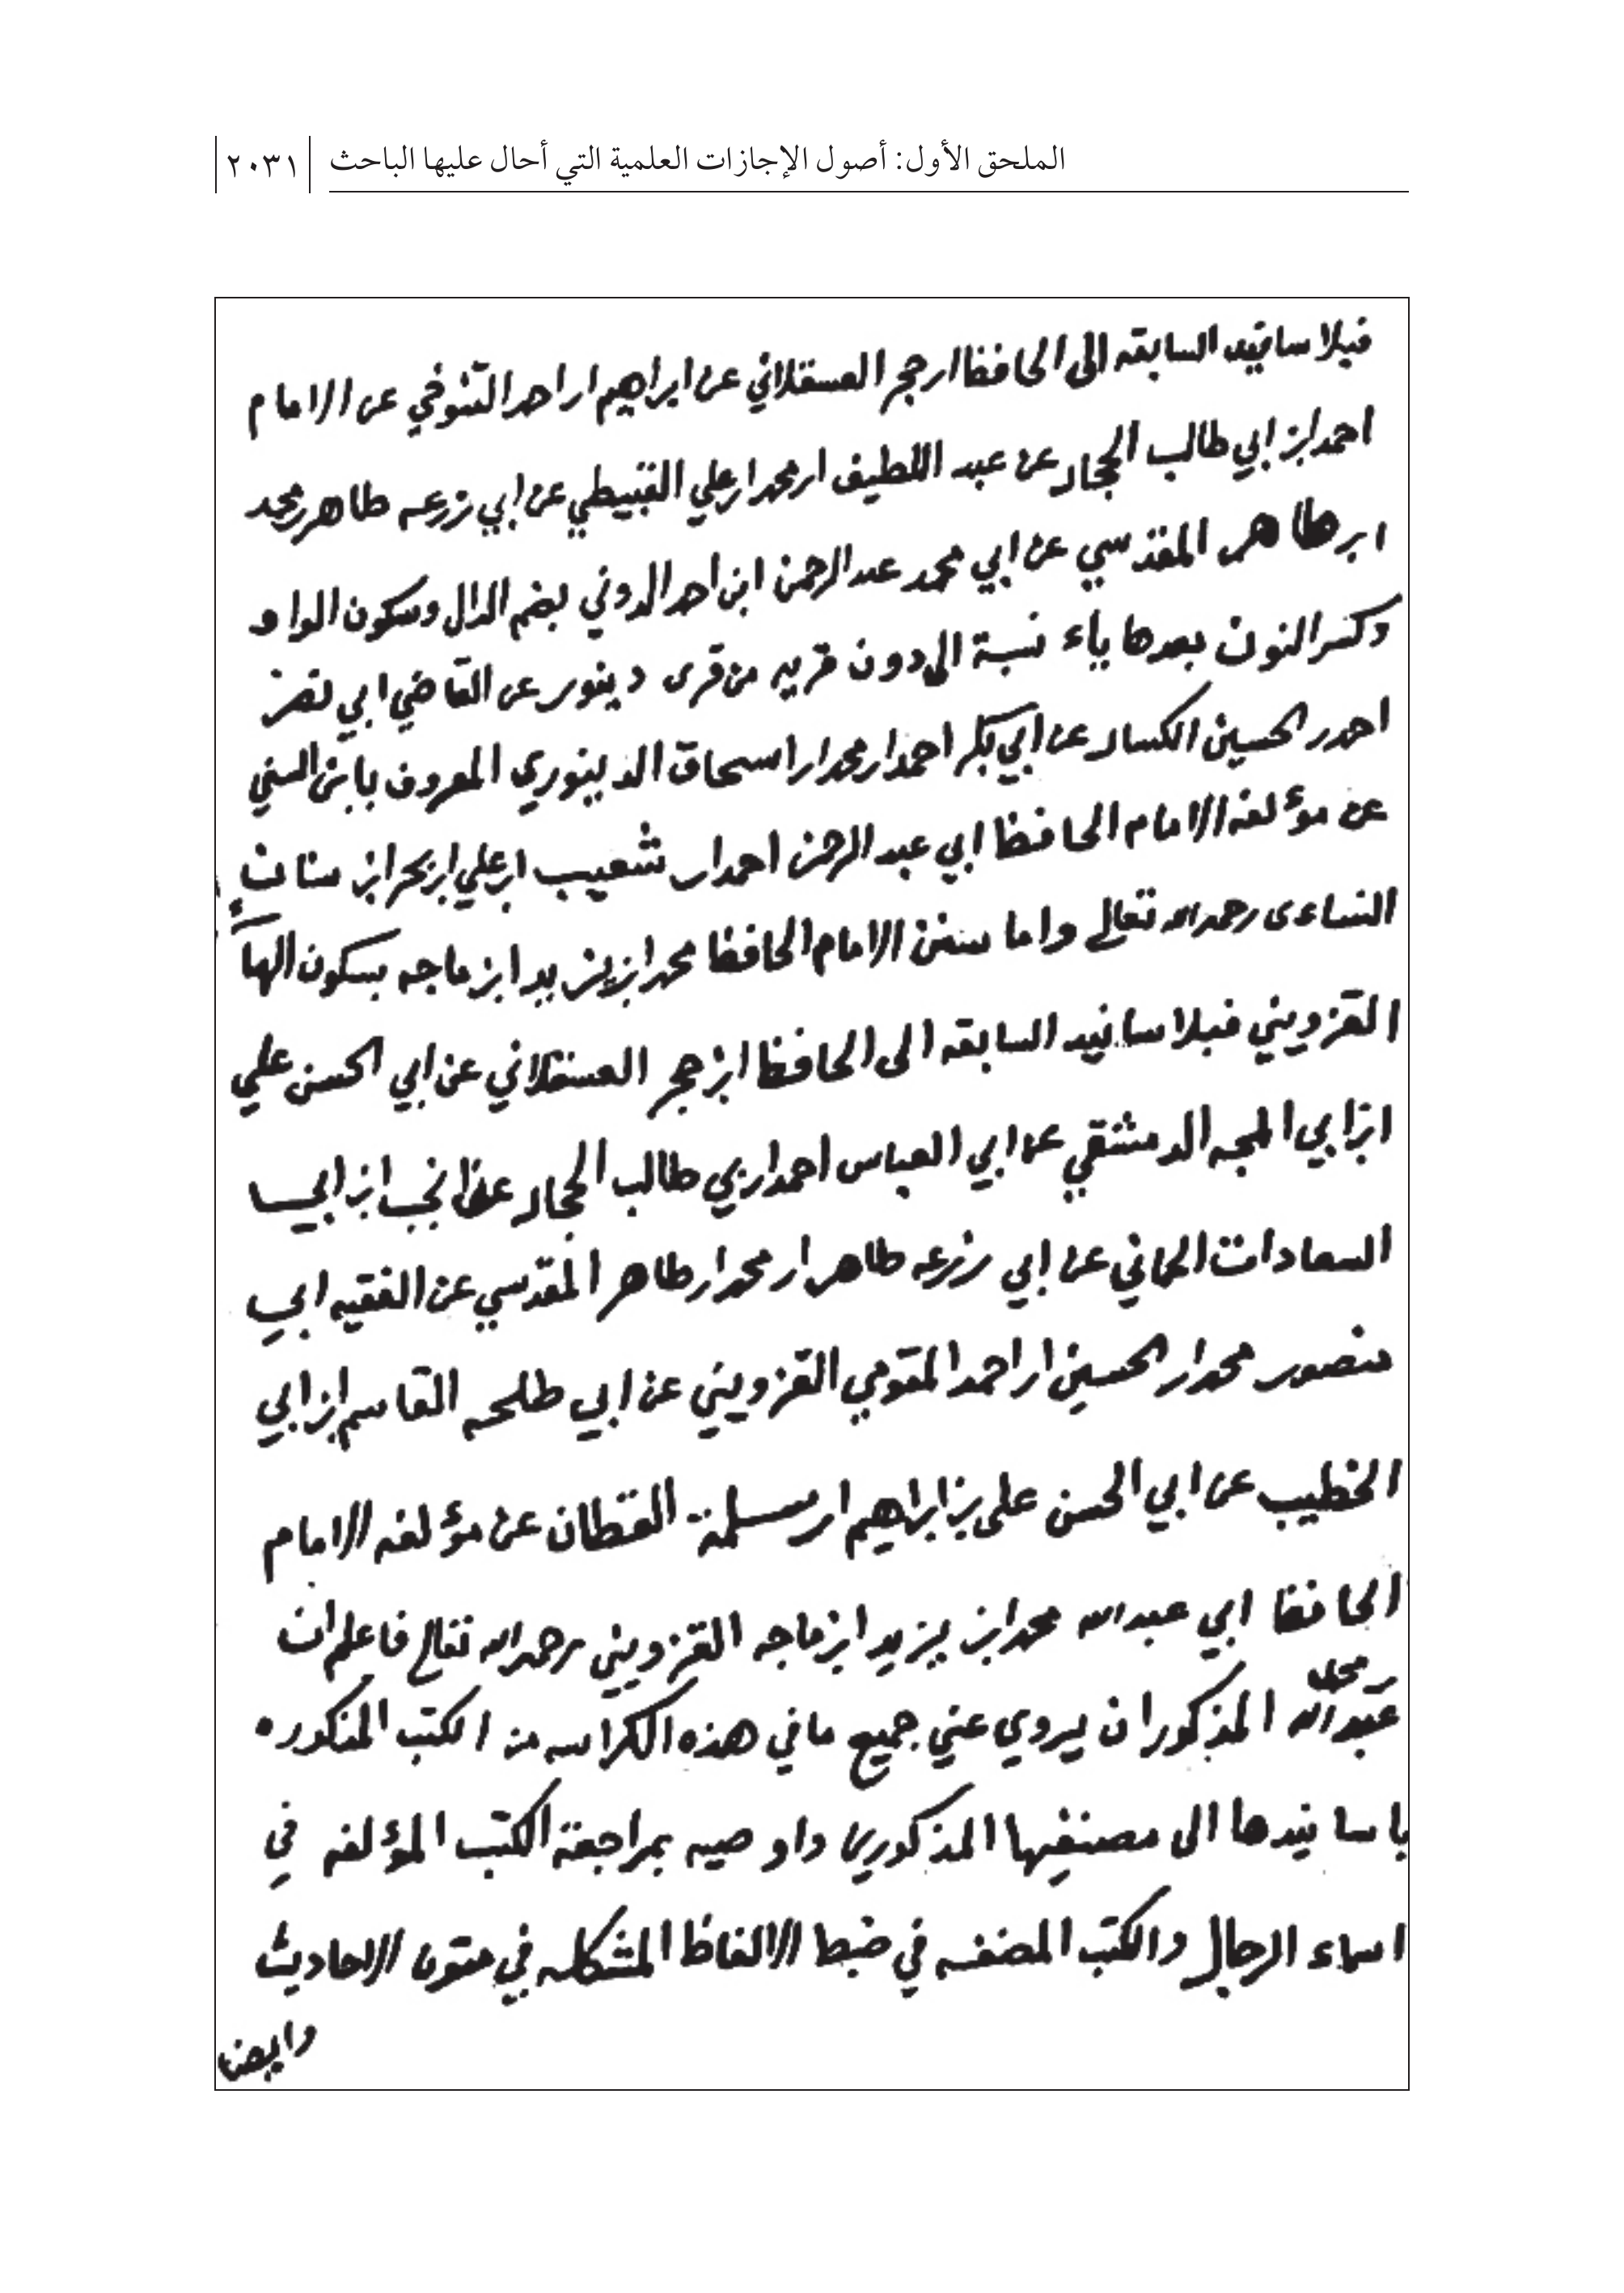 الملحق الأول: أصول الإجازات العلمية التي أحال عليها الباحث ٢٠٣١
فبلاسانيد السابقه الى الحافظ ابن حجر العسقلاني عن ابراهيم ابن احمد التنوخي عن الامام
احمد ابن ابي طالب الحجار عن عبد اللطيف ابن محمد ابن علي القبيطي عن ابي زرعه طاهر بن محمد
ابن طاهر المقدسي عن ابي محمد عبد الرحمن ابن احمد الدوني بضم الدال وسكون الواو
وكسر النون بعدها ياء نسبة الى دون قريه من قرى دينور عن القاضي ابي نصر
احمد بن الحسين الكسار عن ابي بكر احمد ابن محمد ابن اسحاق الدينوري المعروف بابن السني
عن مؤلفه الامام الحافظ ابي عبد الرحمن احمد ابن شعيب ابن علي ابن بحر ابن سنان
النساءى رحمه الله تعالى واما سنن الامام الحافظ محمد ابن يزيد ابن ماجه بسكون الهاء
القزويني فبلاسانيد السابقه الى الحافظ ابن حجر العسقلاني عن ابي الحسن علي
ابن ابي المجد الدمشقي عن ابي العباس احمد ابن ابي طالب الحجار عن انجب ابن ابي
السعادات الحماني عن ابي زرعه طاهر ابن محمد ابن طاهر المقدسي عن الفقيه ابي
منصور محمد ابن الحسين ابن احمد المقومي القزويني عن ابي طلحه القاسم ابن ابي
الخطيب عن ابي الحسن على بن ابراهيم ابن سلمة القطان عن مؤلفه الامام
الحافظ ابي عبد الله محمد ابن يزيد ابن ماجه القزويني رحمه الله تعالى فاعلم ان
محمد
عبد الله المذكور ان يروي عني جميع ما في هذه الكراسه من الكتب المذكوره
باسانيدها الى مصنفيها المذكورين واوصيه بمراجعة الكتب المؤلفه في
اسماء الرجال والكتب المصنفه في ضبط الالفاظ المشكله في متون الاحاديث
وايضا